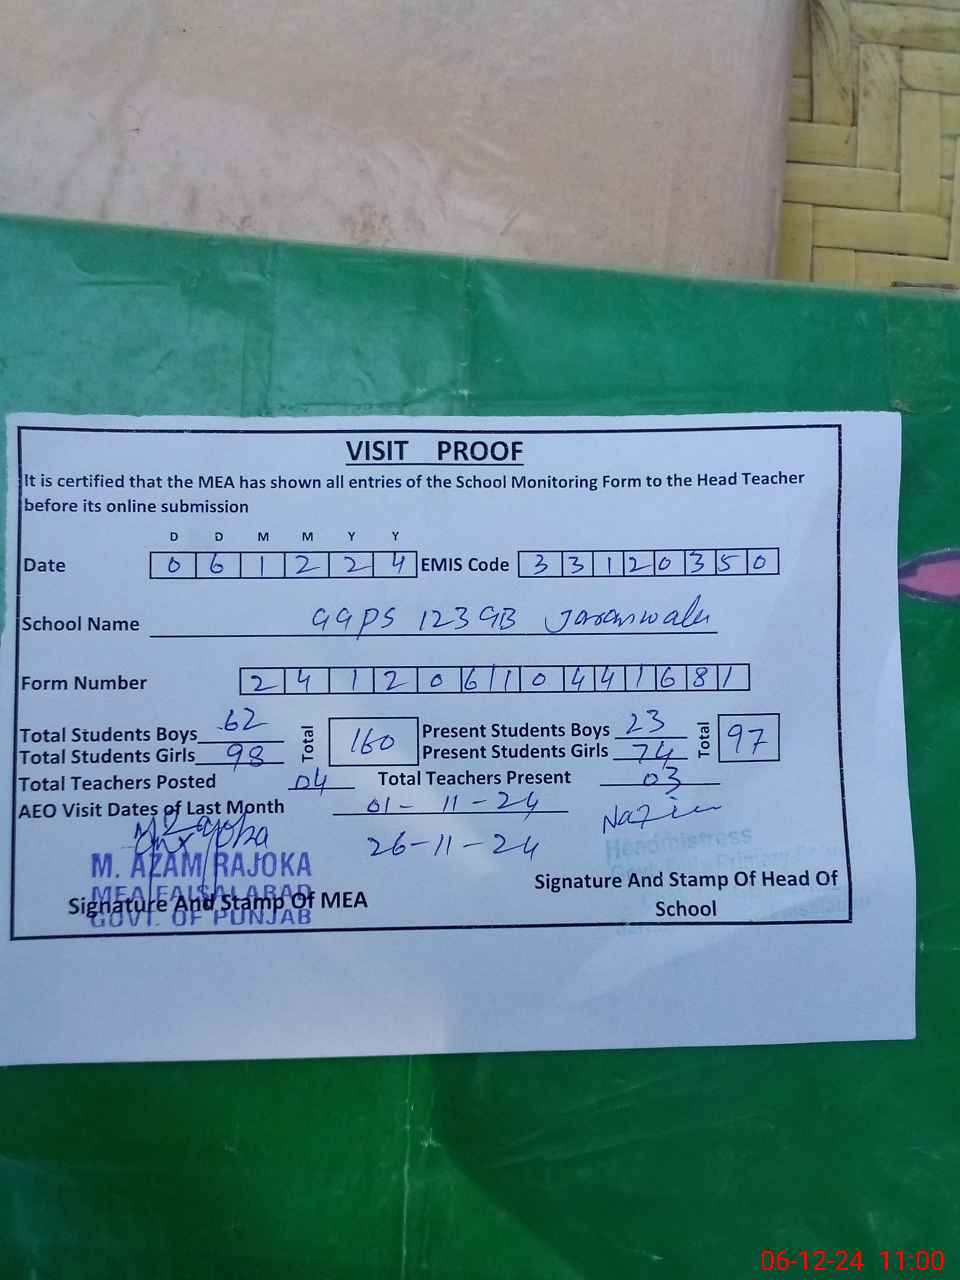 VISIT PROOF
It is certified that the MEA has shown all entries of the School Monitoring Form to the Head Teacher
before its online submission
D D M M Y Y
Date 0 6 1 2 2 4 EMIS Code 3 3 1 2 0 3 5 0
School Name GGPS 123 GB Jaranwala
Form Number 2 4 1 2 0 6 1 1 0 4 4 1 6 8 1
Total Students Boys 62 Total 160 Present Students Boys 23 Total 97
Total Students Girls 98 Present Students Girls 74
Total Teachers Posted 04 Total Teachers Present 03
AEO Visit Dates of Last Month 01-11-24
26-11-24
M. AZAM RAJOKA
MEA FAISALABAD
GOVT. OF PUNJAB
Signature And Stamp Of MEA
Headmistress
Signature And Stamp Of Head Of
School
06-12-24 11:00